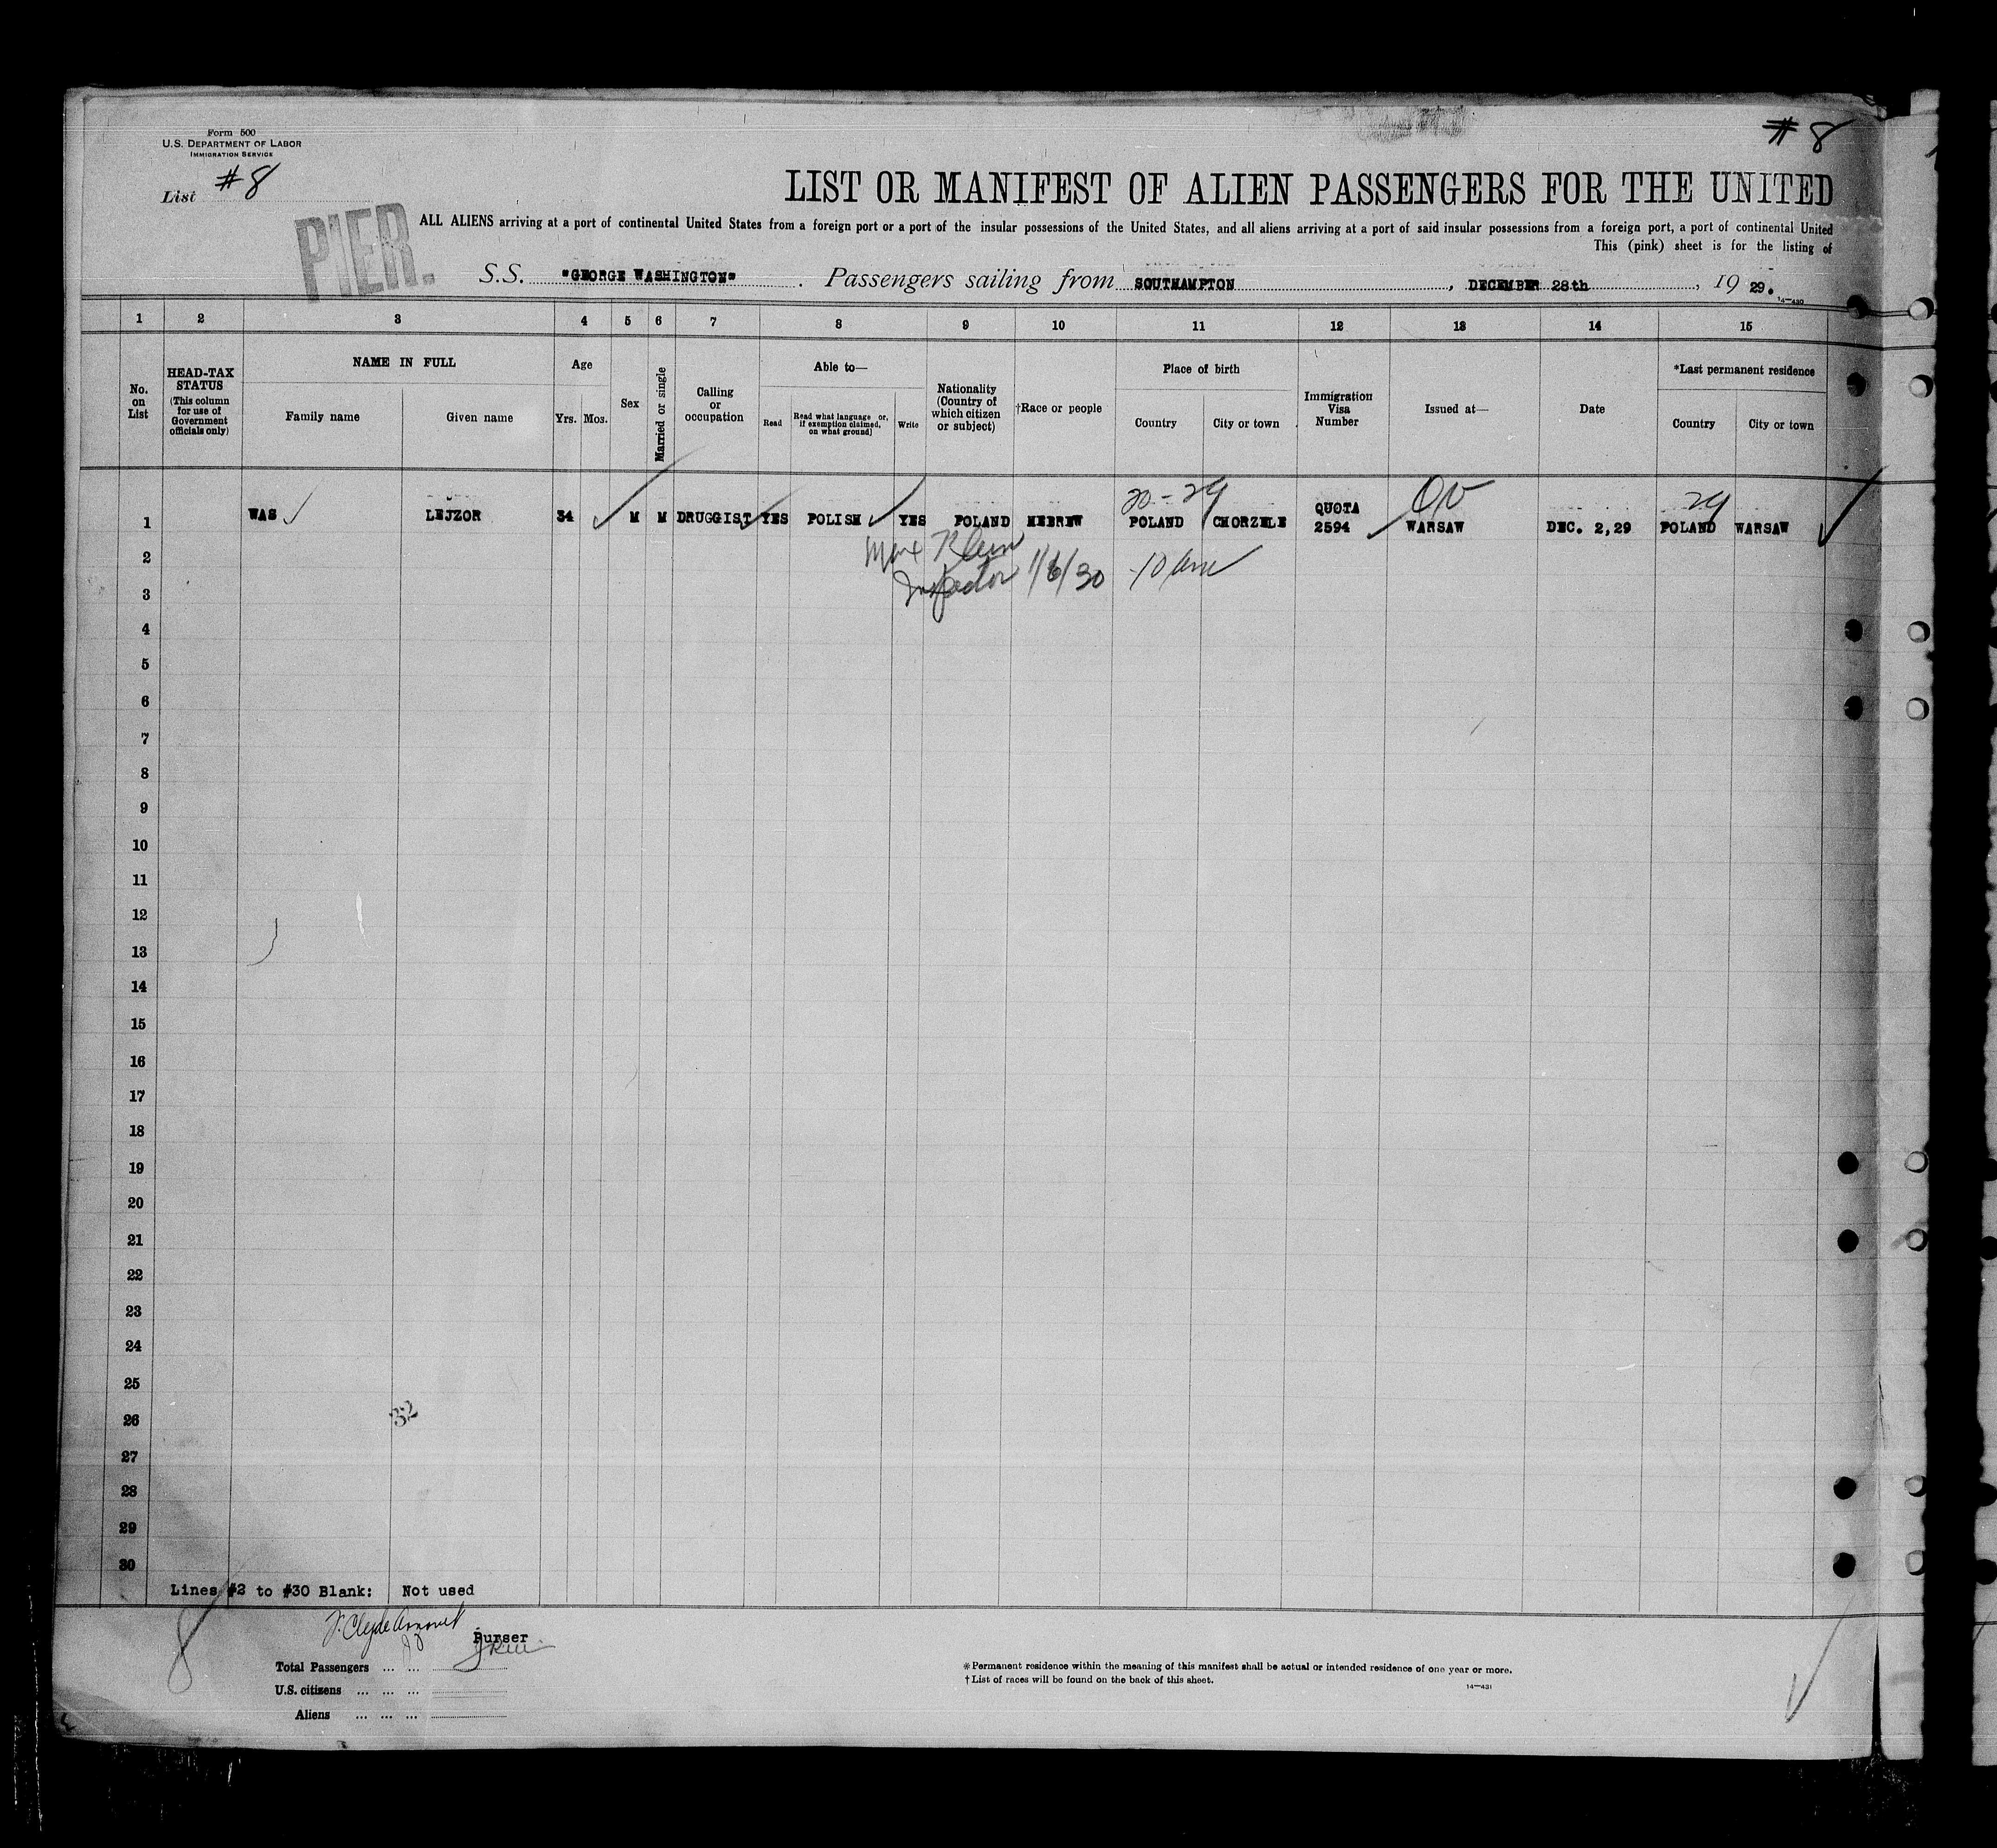 Form 500
U.S. DEPARTMENT OF LABOR
IMMIGRATION SERVICE
List #8
#8
PIER.
LIST OR MANIFEST OF ALIEN PASSENGERS FOR THE UNITED
ALL ALIENS arriving at a port of continental United States from a foreign port or a port of the insular possessions of the United States, and all aliens arriving at a port of said insular possessions from a foreign port, a port of continental United
This (pink) sheet is for the listing of
S.S. "GEORGE WASHINGTON". Passengers sailing from SOUTHAMPTON, DECEMBER 28th, 19 29.
14-430
1 2 3 4 5 6 7 8 9 10 11 12 13 14 15
No. on List
HEAD-TAX STATUS (This column for use of Government officials only)
NAME IN FULL
Family name
Given name
Age
Yrs. Mos.
Sex
Married or single
Calling or occupation
Able to—
Read
Read what language or, if exemption claimed, on what ground]
Write
Nationality (Country of which citizen or subject)
†Race or people
Place of birth
Country
City or town
Immigration Visa Number
Issued at—
Date
*Last permanent residence
Country
City or town
20-29
29
1 WAS LEJZOR 34 M M DRUGGIST YES POLISH YES POLAND HEBREW POLAND CHORZELE QUOTA 2594 WARSAW DEC. 2,29 POLAND WARSAW
Max Klein
Inspector 1/6/30 10 am
2
3
4
5
6
7
8
9
10
11
12
13
14
15
16
17
18
19
20
21
22
23
24
25
26
32
27
28
29
30
Lines #2 to #30 Blank: Not used
8
J. Clyde
Purser
Total Passengers ... ...
U.S. citizens ... ... ...
Aliens ... ... ...
*Permanent residence within the meaning of this manifest shall be actual or intended residence of one year or more.
†List of races will be found on the back of this sheet.
14-431